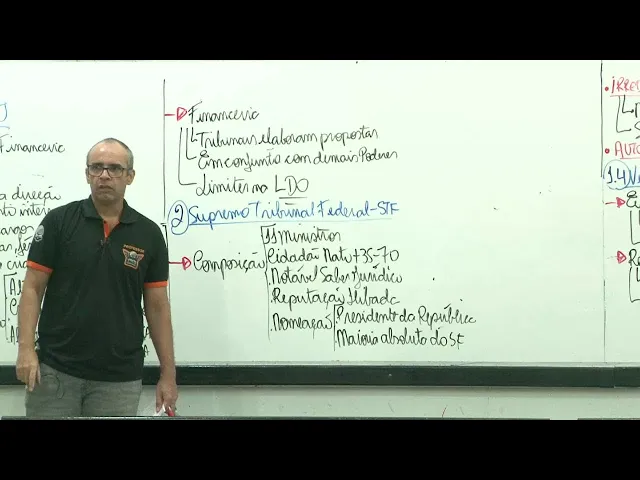 Financeira
a direção
Financeira
Tribunais elaboram propostas
Em conjunto com demais Poderes
Limites na LDO
2 Supremo Tribunal Federal-STF
Composição
11 Ministros
Cidadão Nato +35-70
Notável Saber Jurídico
Reputação Ilibada
Nomeação
Presidente da República
Maioria absoluta do SF
PROFESSOR
1.4